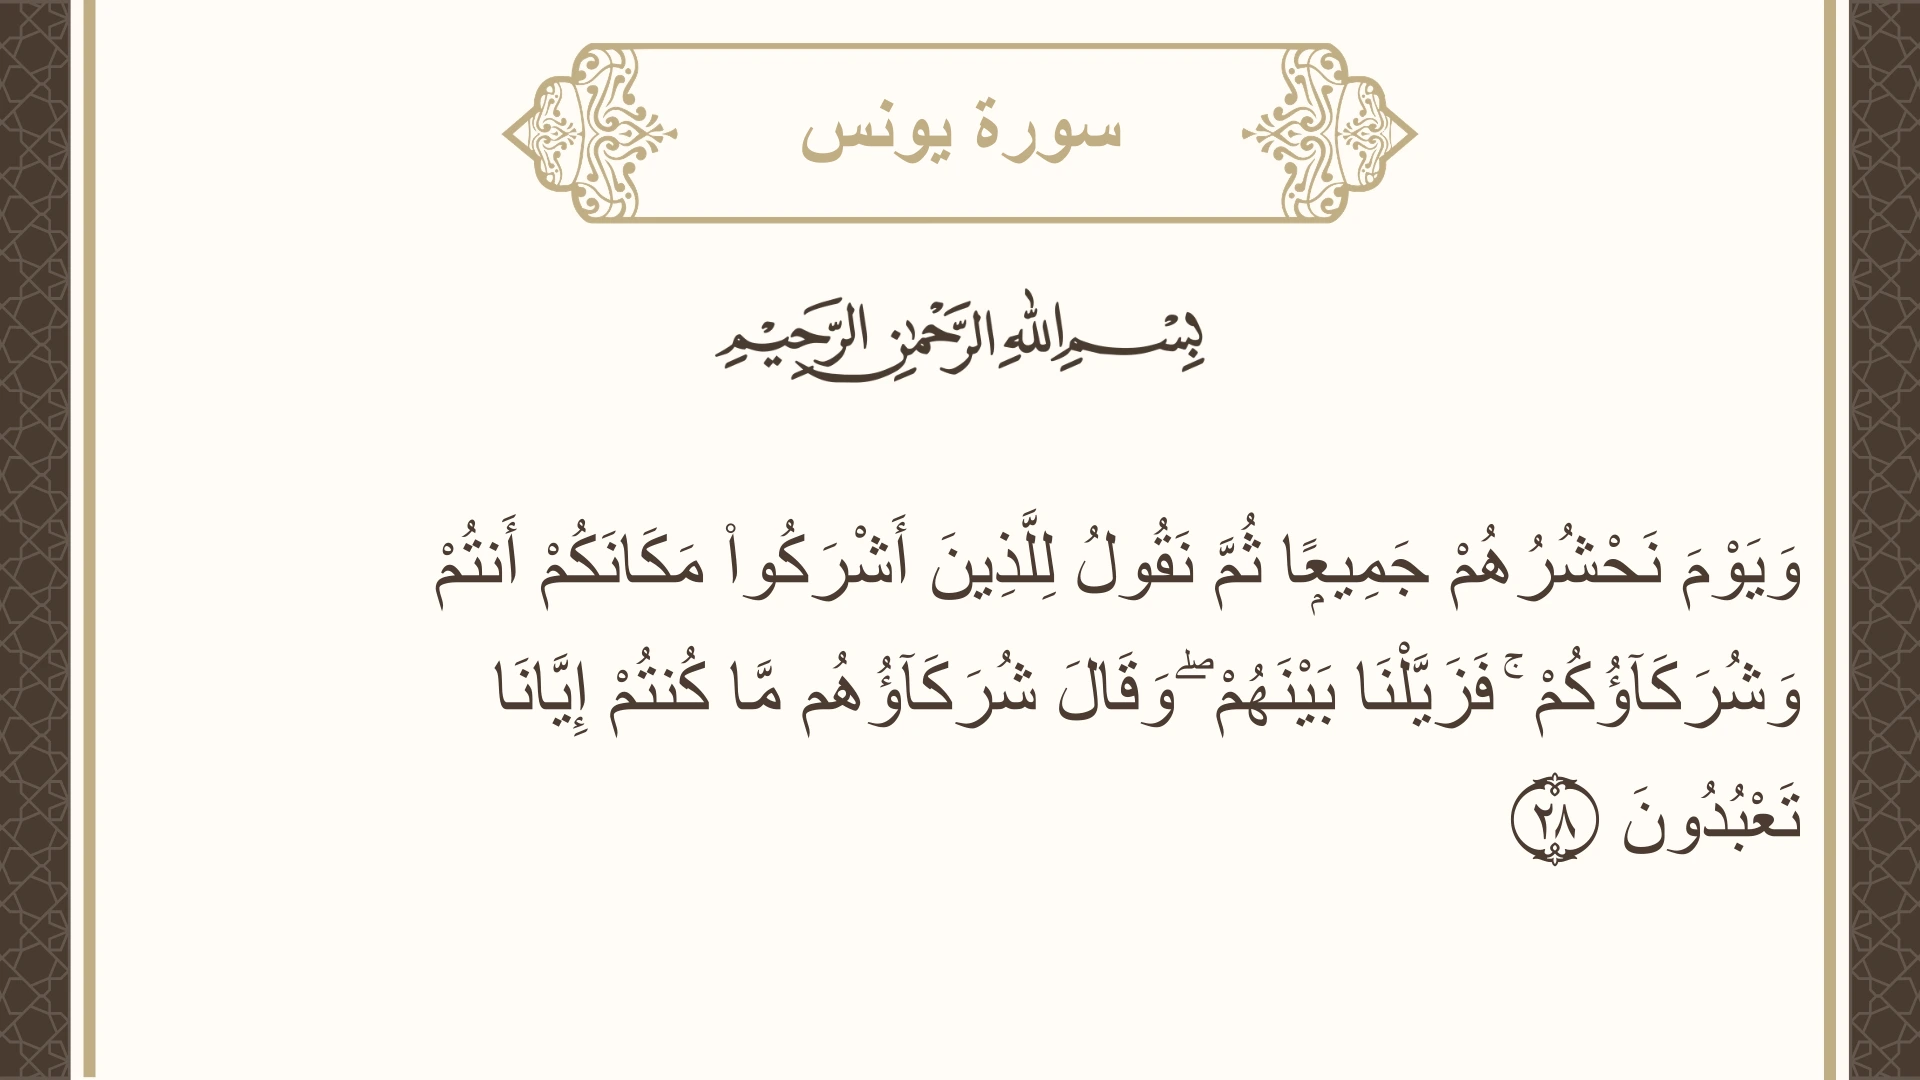 سورة يونس
بِسْمِ اللَّهِ الرَّحْمَٰنِ الرَّحِيمِ
وَيَوْمَ نَحْشُرُهُمْ جَمِيعًۭا ثُمَّ نَقُولُ لِلَّذِينَ أَشْرَكُوا۟ مَكَانَكُمْ أَنتُمْ
وَشُرَكَآؤُكُمْ ۚ فَزَيَّلْنَا بَيْنَهُمْ ۖ وَقَالَ شُرَكَآؤُهُم مَّا كُنتُمْ إِيَّانَا
تَعْبُدُونَ ٢٨